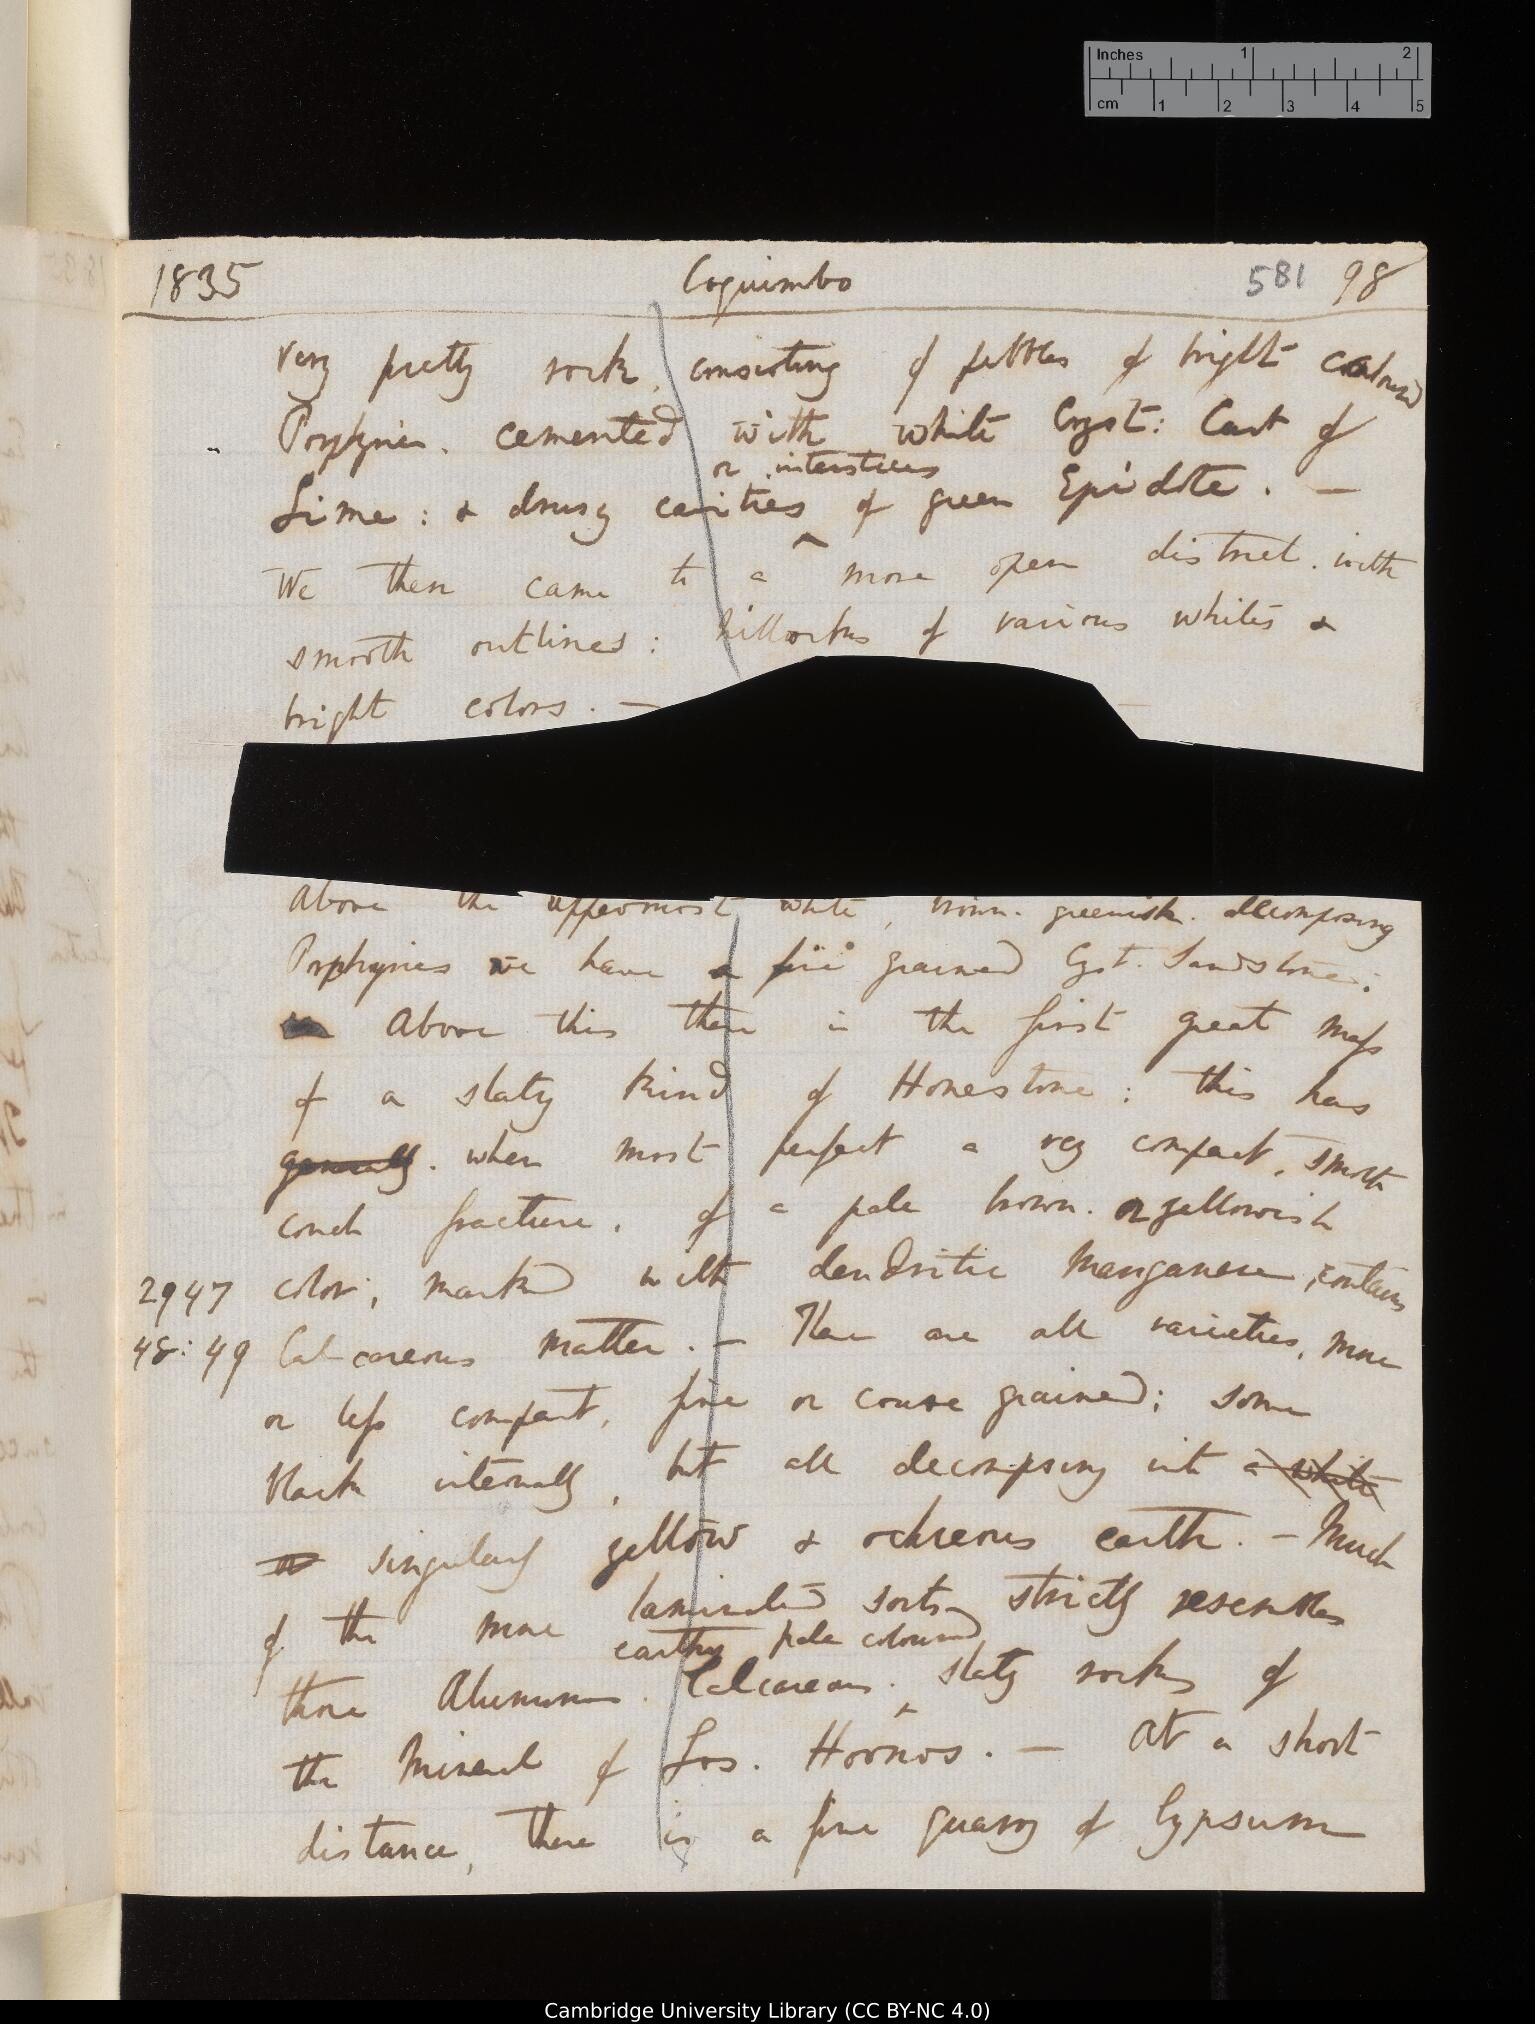 Inches 1 2
cm 1 2 3 4 5
1835 Coquimbo 581 98
very pretty rock, consisting of pebbles of bright coloured
Porphyries. cemented with white Cryst: Carb of
or interstices
Lime: & drusy cavities of green Epidote. —
We then came to a more open district. with
smooth outlines: hillocks of various whites &
bright colors. —
Above the uppermost white, brown. greenish. decomposing
Porphyries we have a fine grained Cryst. Sandstone:
Above this there is the first great mass
of a slaty kind of Honestone: this has
generally. when most perfect a very compact, smooth
conch fracture. of a pale brown. or yellowish
2947 color; marked with dendritic Manganese, contains
48: 49 Calcareous matter. — There are all varieties, more
or less compact, fine or coarse grained; some
black internally, but all decomposing into a white
or singularly yellow & ochreous earth. — Much
of the more laminated sorts strictly resembles
earthy pale coloured
those Aluminous. Calcareous. slaty rocks of
the Mineral of Los. Hornos. — At a short
distance, there is a fine quarry of Gypsum
Cambridge University Library (CC BY-NC 4.0)